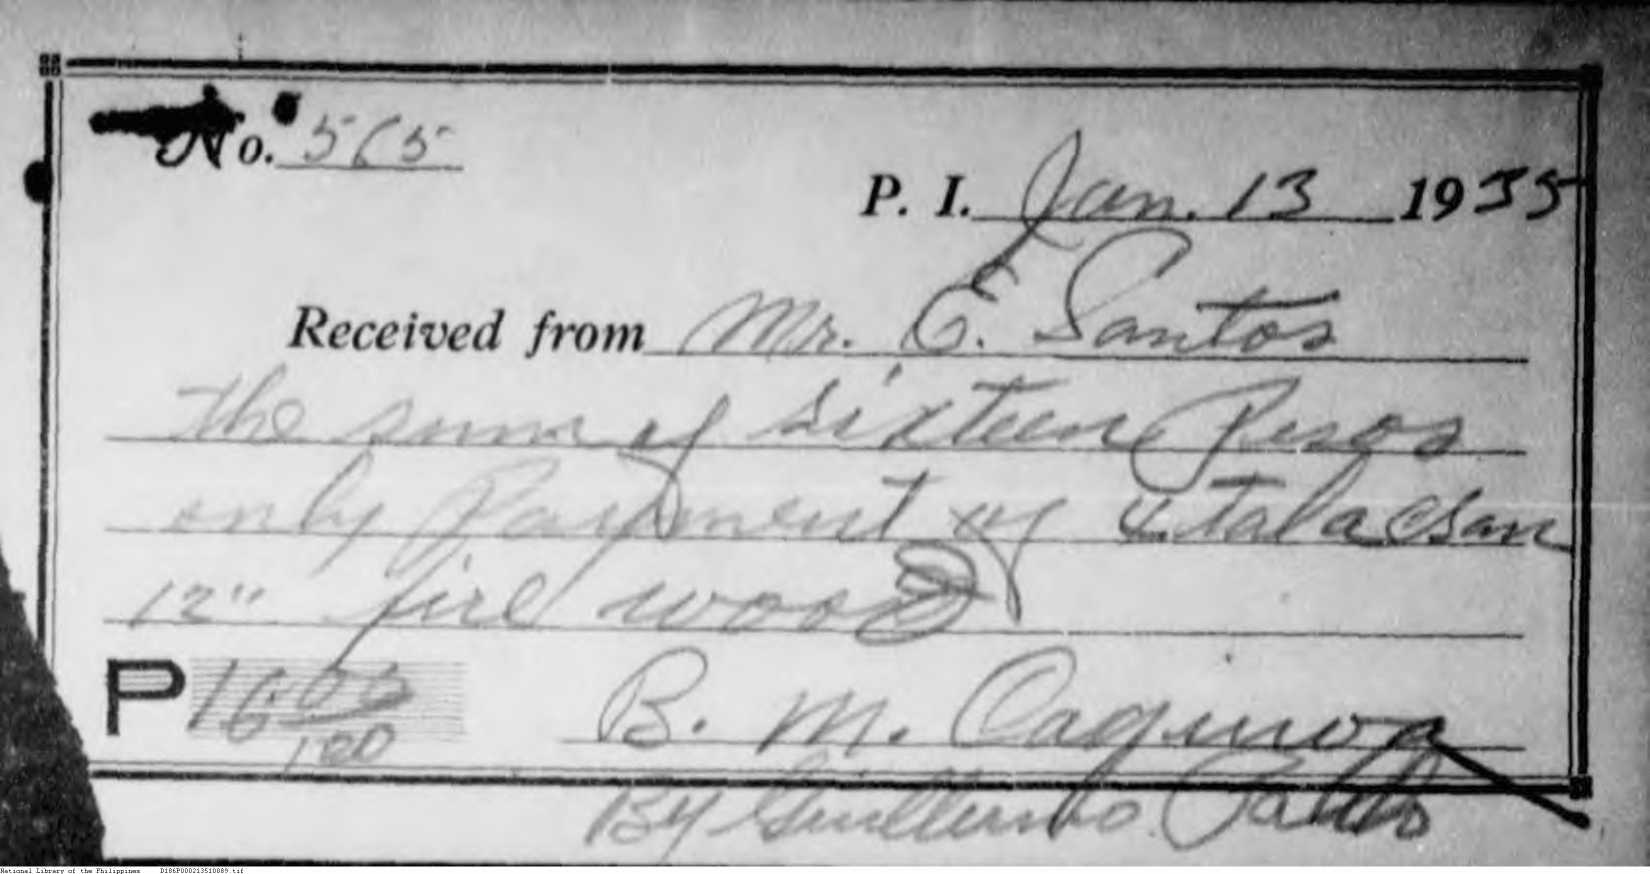 No. 565
P. I. Jan. 13 1935
Received from Mr. E. Santos
the sum of sixteen Pesos
only Payment of 4 talacsan
12" fire wood
P 16 00/100
B. M. Caguioa
By Guillermo Pablo
National Library of the Philippines D186P000213510089.tif